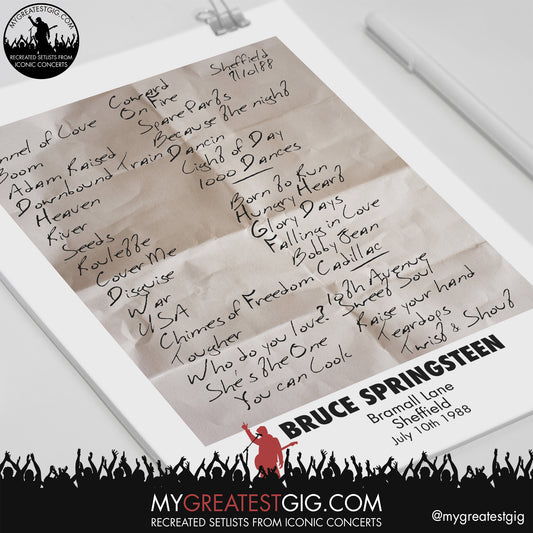 MYGREATESTGIG.COM
RECREATED SETLISTS FROM ICONIC CONCERTS
Sheffield
7/10/88
nnel of Love
Boom
Adam Raised
Downbound Train
Heaven
River
Seeds
Roulette
Cover Me
Disguise
War
USA
Chimes of Freedom
Tougher
Who do you love?
She's the One
You can Look
Coward
On Fire
Spare Parts
Because the night
Dancin
Light of Day
1000 Dances
Born to Run
Hungry Heart
Glory Days
Falling in Love
Bobby Jean
Cadillac
10th Avenue
Sweet Soul
Raise your hand
Teardops
Twist & Shout
BRUCE SPRINGSTEEN
Bramall Lane
Sheffield
July 10th 1988
MYGREATESTGIG.COM
RECREATED SETLISTS FROM ICONIC CONCERTS
@mygreatestgig